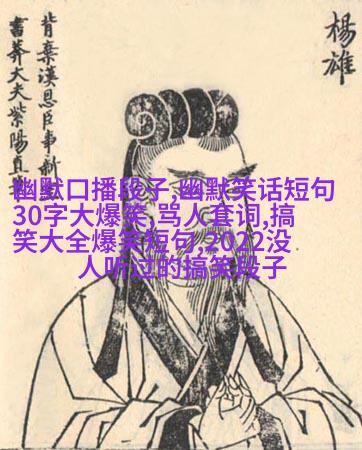 楊雄
背棄漢恩臣事新
書莽大夫紫陽直
幽默口播段子,幽默笑话短句
30字大爆笑,骂人套词,搞
笑大全爆笑短句,2022没
人听过的搞笑段子